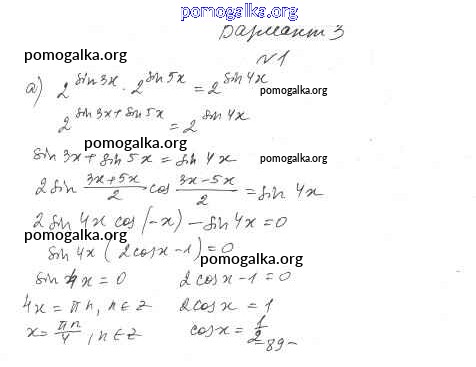 pomogalka.org
Вариант 3
pomogalka.org
N1
а) 2^sin3x · 2^sin5x = 2^sin4x
pomogalka.org
2^sin3x+sin5x = 2^sin4x
pomogalka.org
sin3x + sin5x = sin4x
pomogalka.org
2 sin (3x+5x)/2 cos (3x-5x)/2 = sin4x
2 sin4x cos(-x) - sin4x = 0
pomogalka.org
sin4x (2cosx - 1) = 0
pomogalka.org
sin4x = 0 2cosx - 1 = 0
4x = πn, n∈z 2cosx = 1
x = πn/4, n∈z cosx = 1/2
-89-